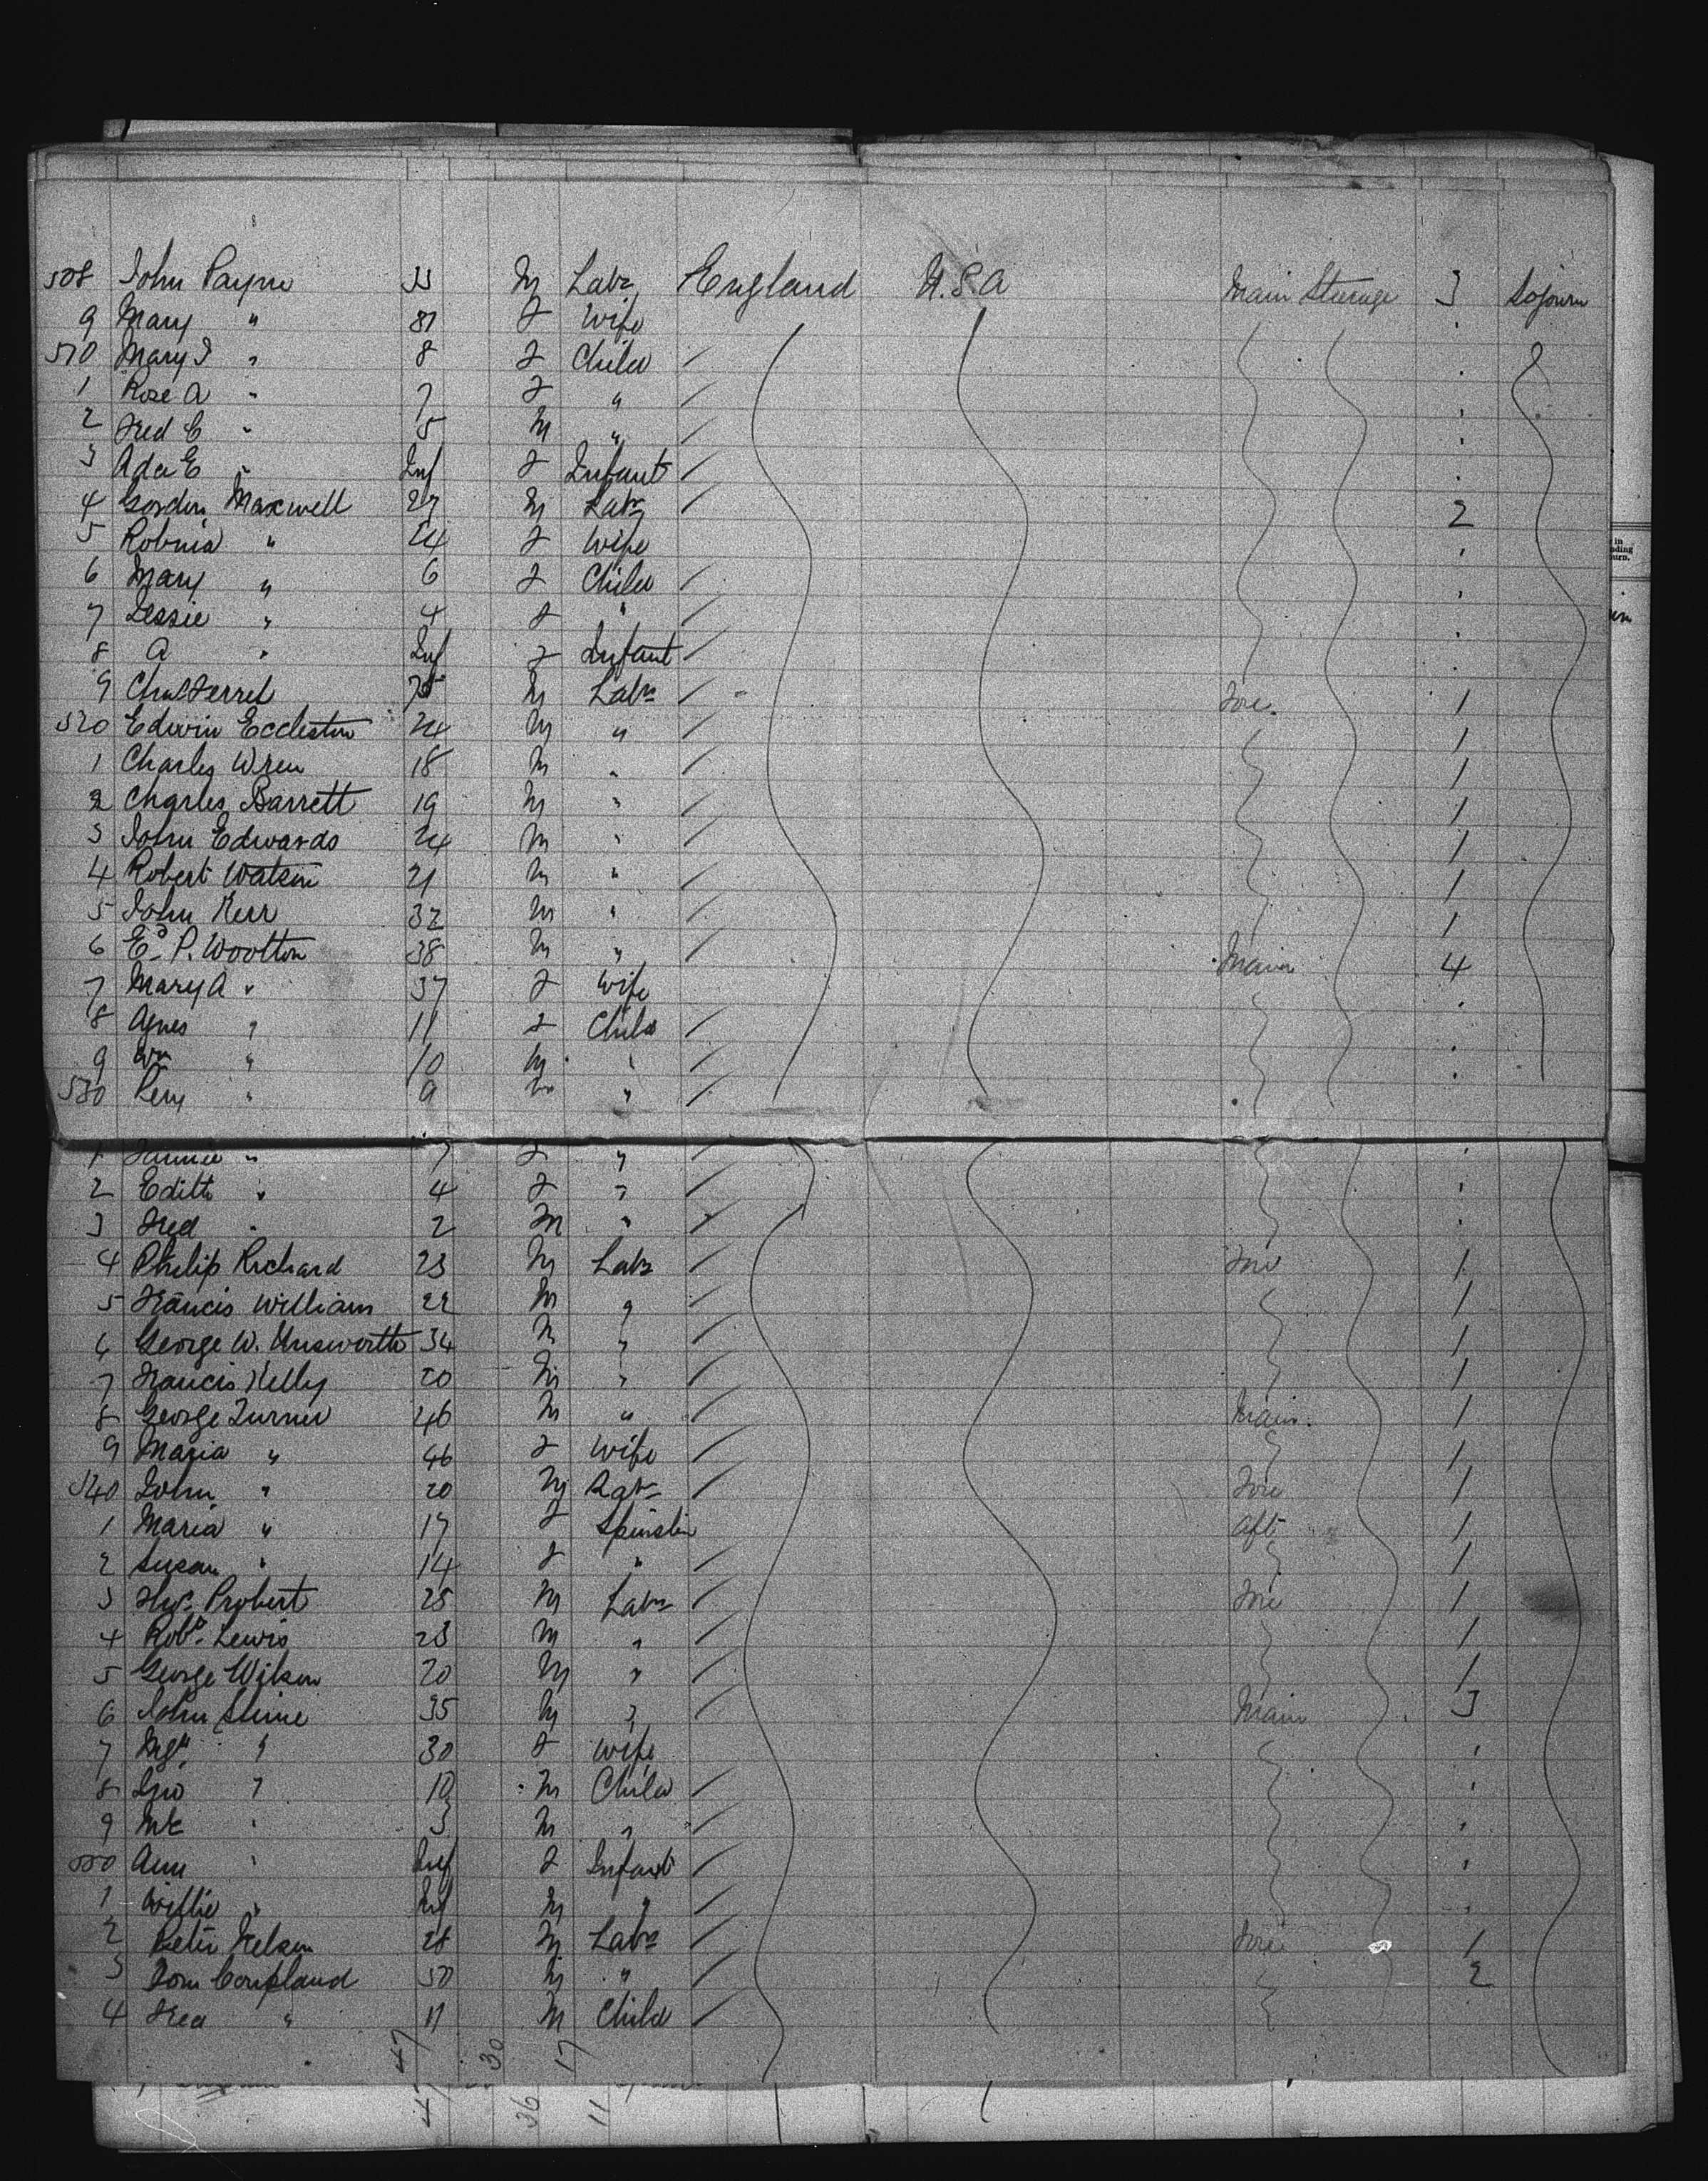 508 John Payne 33 M Labr England U.S.A Main Steerage 3 Sojourn
9 Mary " 31 F Wife
510 Mary J " 8 F Child /
1 Rose A " 7 F " /
2 Fred C " 5 M " /
3 Ada E " Inf F Infant /
4 Gordon Maxwell 27 M Labr / 2
5 Robina " 24 F Wife
6 Mary " 6 F Child /
7 Jessie " 4 F " /
8 A " Inf F Infant /
9 Chas Ferrel 25 M Labr / Fore 1
520 Edwin Eccleston 24 M " / 1
1 Charles Wren 18 M " / 1
2 Charles Barrett 19 M " / 1
3 John Edwards 24 M " / 1
4 Robert Watson 21 M " / 1
5 John Kerr 32 M " / 1
6 Ed P. Wootton 38 M " / Main 4
7 Mary A " 37 F Wife
8 Agnes " 11 F Child /
9 Wm " 10 M " /
530 " 9 M " /
1 Fannie " 7 F " /
2 Edith " 4 F " /
3 Fred " 2 M " /
4 Philip Richard 23 M Labr / Fore 1
5 Francis William 22 M " / 1
6 George W. Unsworth 34 M " / 1
7 Francis Kelly 20 M " / 1
8 George Turner 46 M " / Main 1
9 Maria " 46 F Wife / 1
540 John " 20 M Labr / Fore 1
1 Maria " 17 F Spinster Aft 1
2 Susan " 14 F " / 1
3 Probert 25 M Labr / Fore 1
4 Robt Lewis 23 M " / 1
5 George Wilson 20 M " / 1
6 John 35 M " / Main 3
7 Mgt " 30 F Wife
8 " 10 M Child /
9 " 3 M " /
550 Ann " Inf F Infant /
1 Willie " Inf M " /
2 Peter Nelson 28 M Labr / Fore 1
3 Tom Coupland 50 M " / 2
4 Fred " 11 M Child /
47 30 17
47 36 11